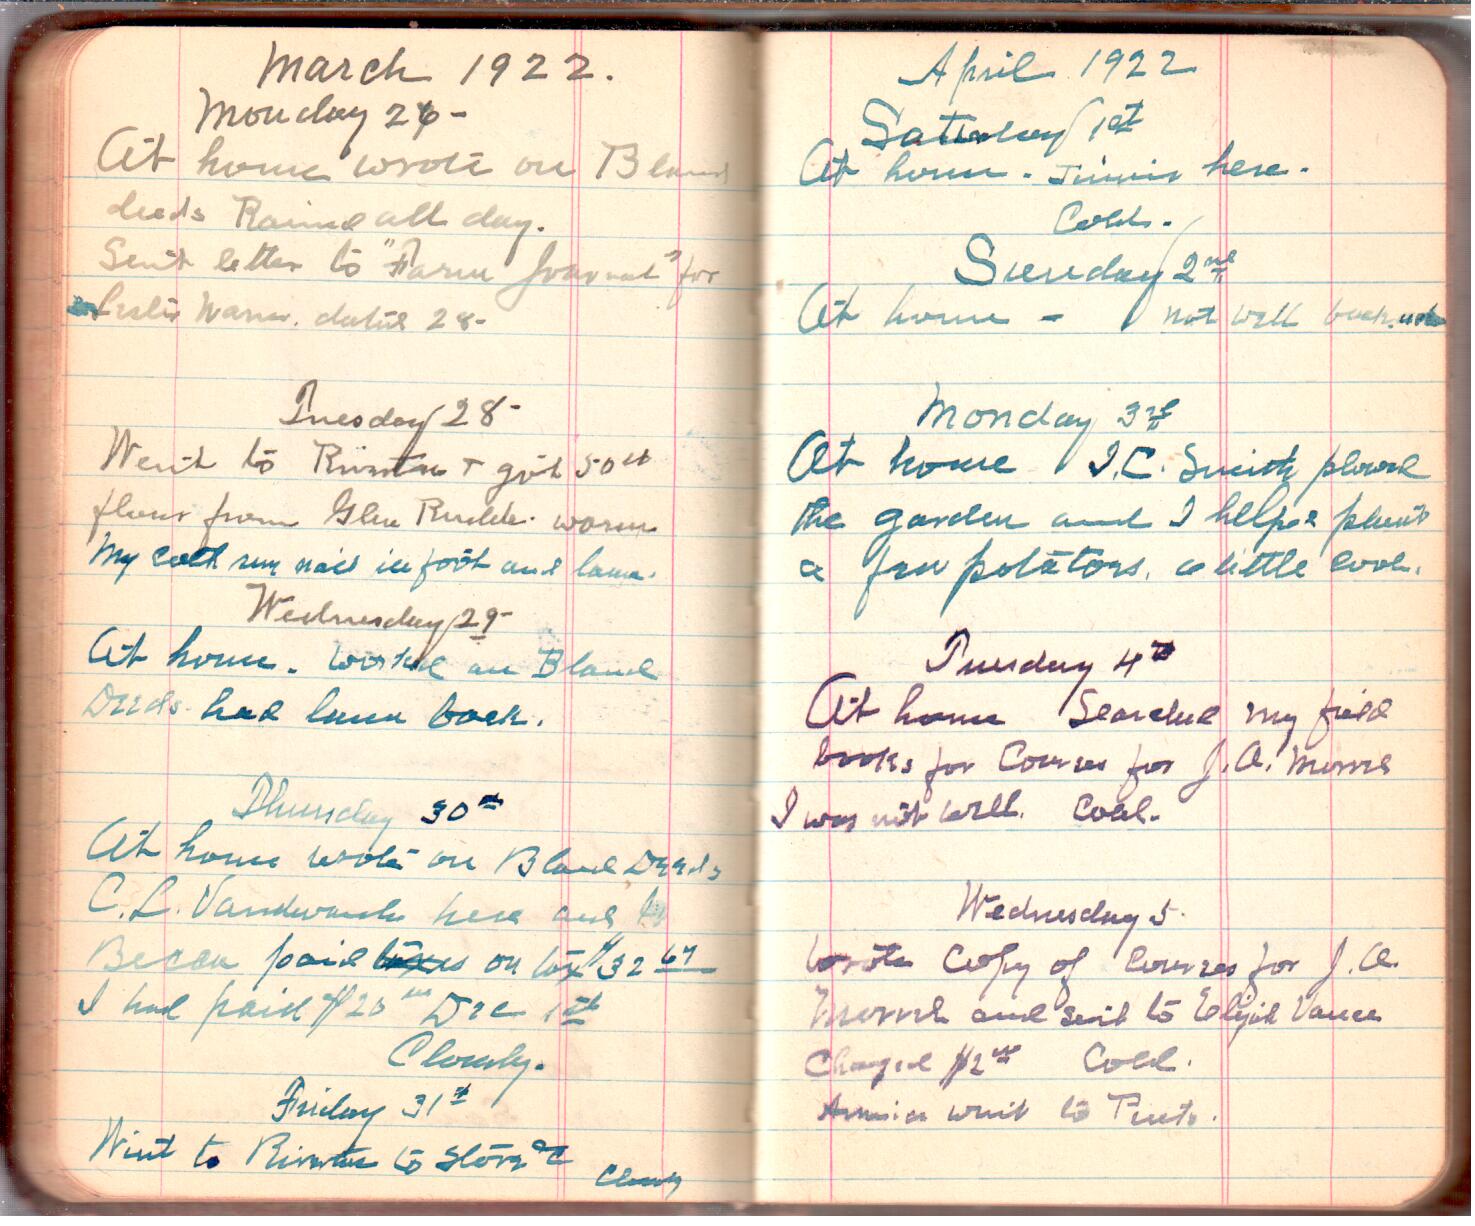 March 1922.
Monday 26-
At home wrote on Bland
deeds Rained all day.
Sent letter to "Farm Journal" for
Leslie dated 28-
Tuesday 28-
Went to & got 50
flour from warm
My colt run nail in foot and lame.
Wednesday 29-
At home. worked on Bland
Deeds. had lame back.
Thursday 30th
At home wrote on Bland Deeds
C.L. here and
paid on tax $32 67
I had paid $20 Dec 1st
Cloudy.
Friday 31st
Went to to Store &C
Cloudy
April 1922
Saturday 1st
At home. Jimmie here.
Cold.
Sunday 2nd
At home - not well back
Monday 3rd
At home I.C. Smith plowed
the garden and I helped plant
a few potators. a little cool.
Tuesday 4th
At home Searched my field
books for Courses for J.A. Morris
I was not well. Cool.
Wednesday 5.
Wrote Copy of Courses for J.A.
Morris and sent to Elijah Vance
Charged $2 Cold.
went to